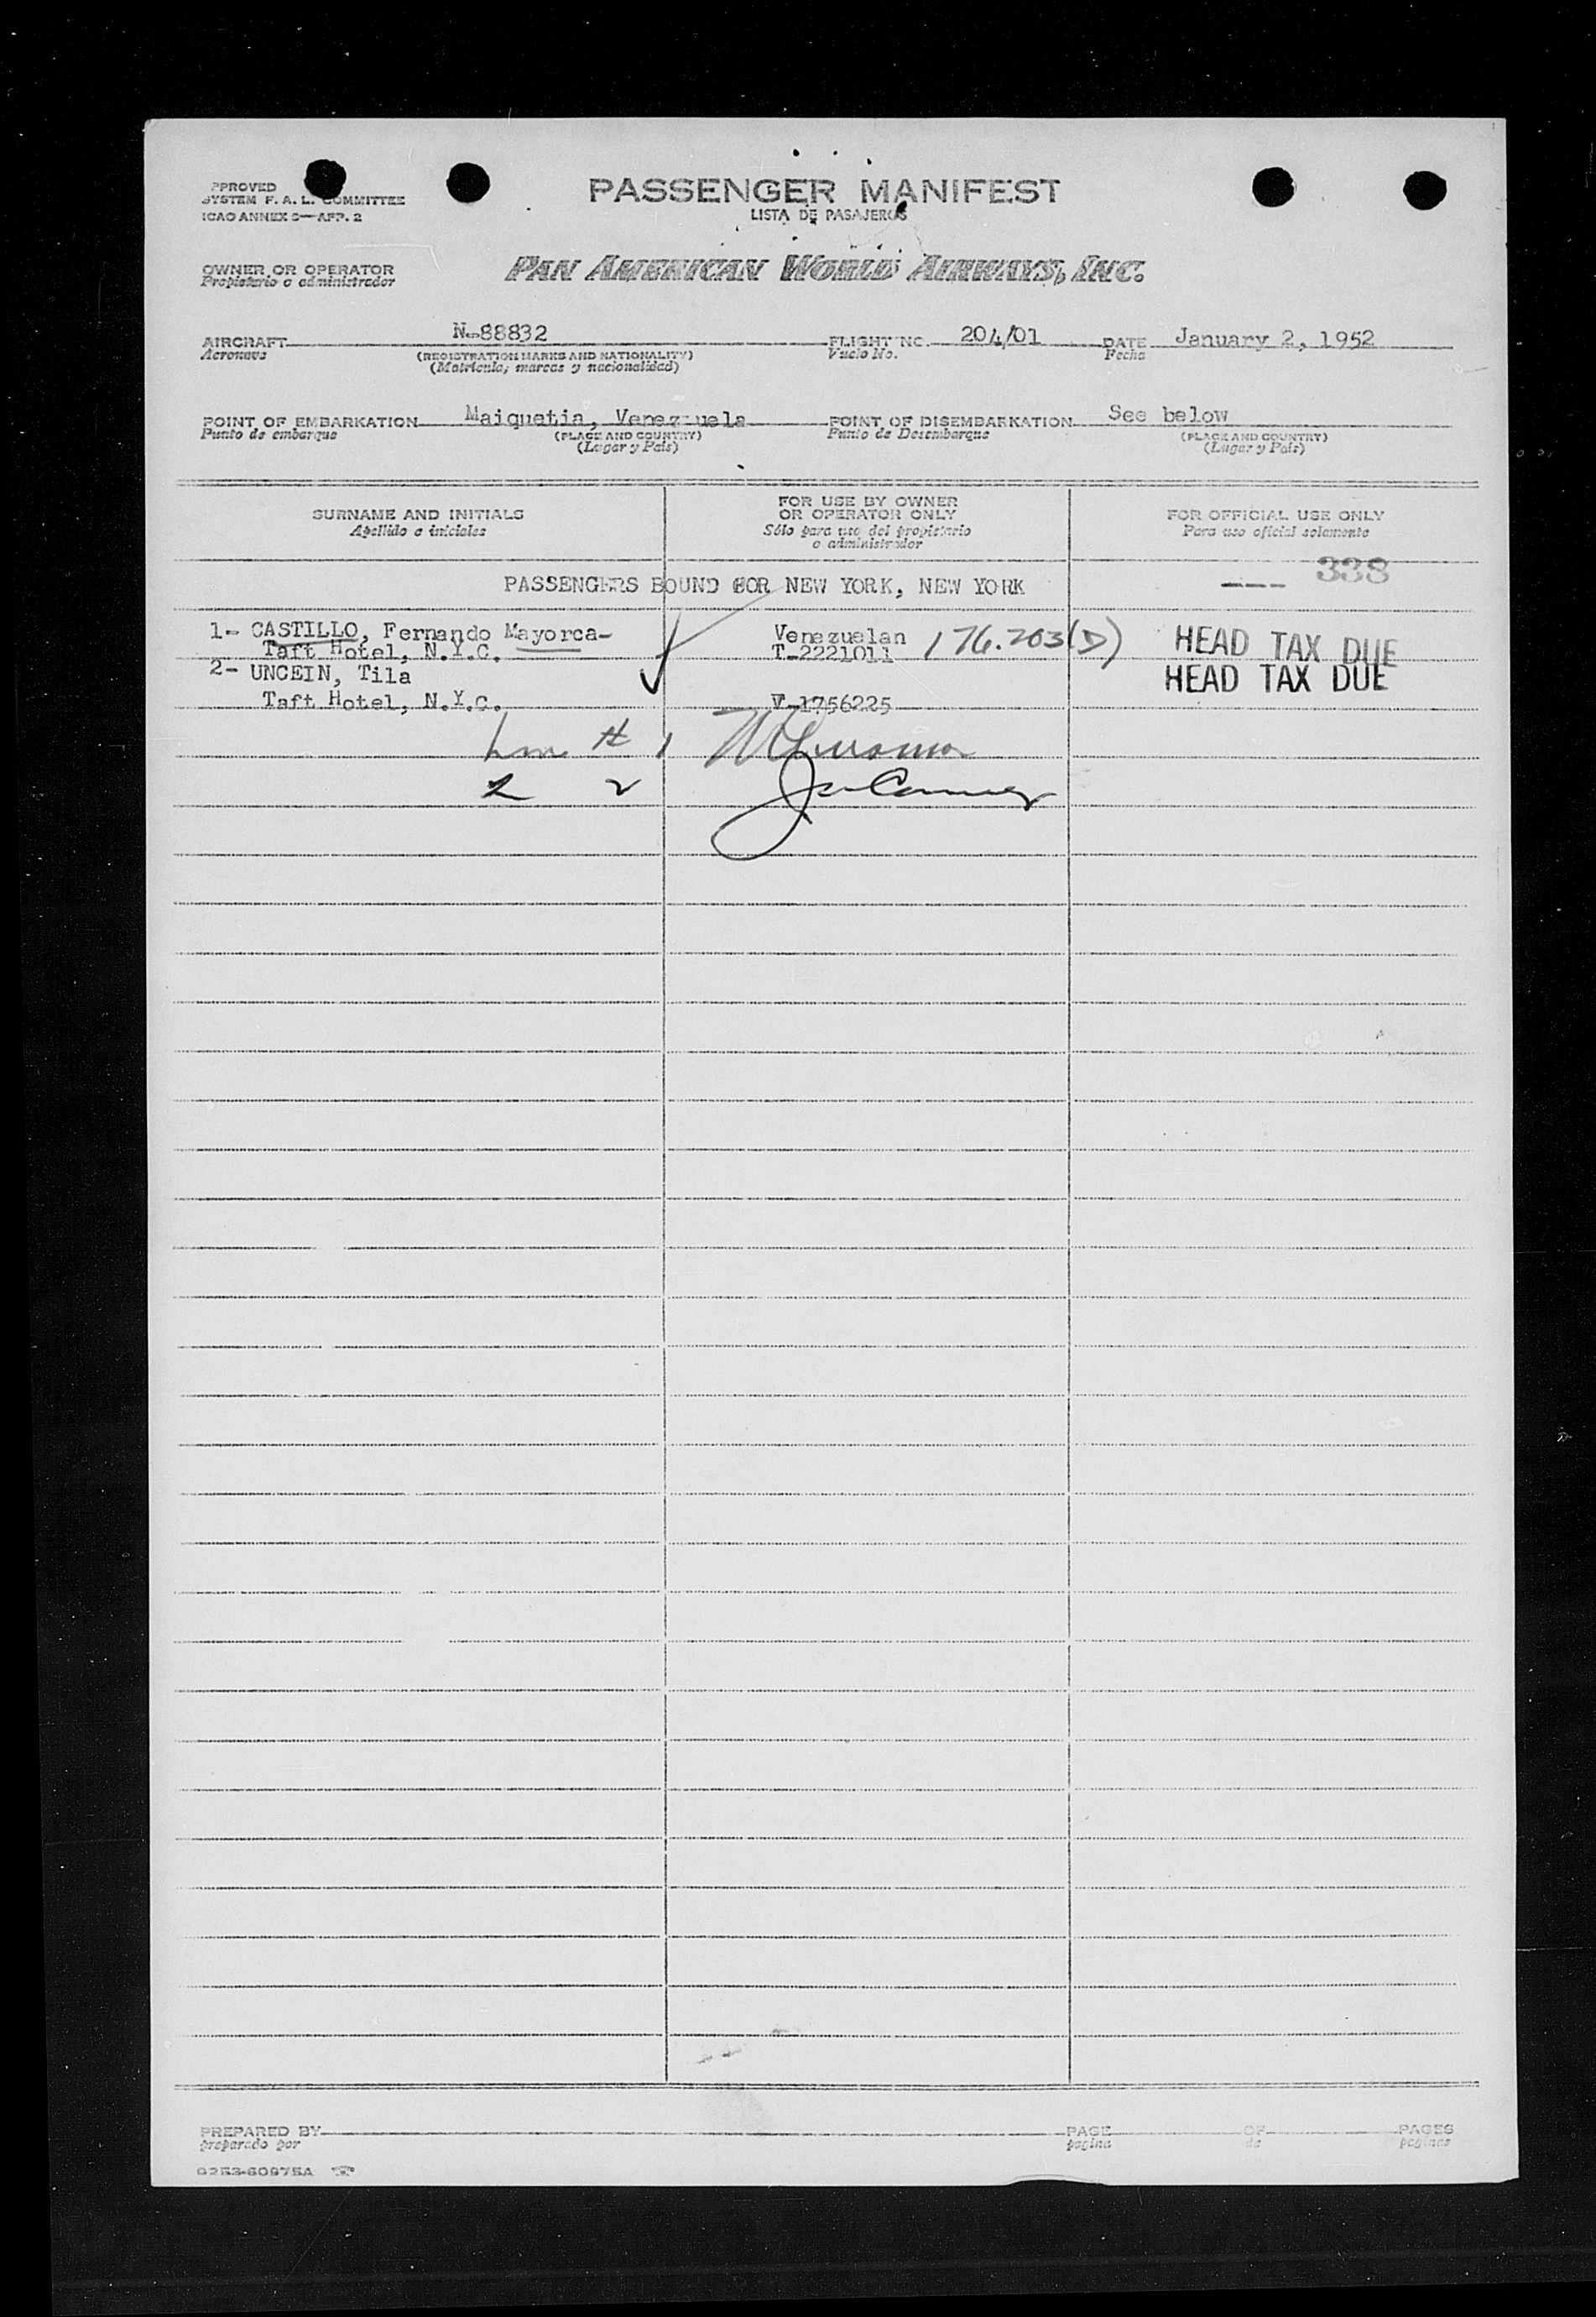 PPROVED
SYSTEM F. A. L. COMMITTEE
ICAO ANNEX 9—APP. 2
PASSENGER MANIFEST
LISTA DE PASAJEROS
OWNER OR OPERATOR
Propietario o administrador
PAN AMERICAN WORLD AIRWAYS, INC.
AIRCRAFT N-88832 FLIGHT NO. 204/01 DATE January 2, 1952
Aeronave (REGISTRATION MARKS AND NATIONALITY) Vuelo No. Fecha
(Matrícula, marcas y nacionalidad)
POINT OF EMBARKATION Maiquetia, Venezuela POINT OF DISEMBARKATION See below
Punto de embarque (PLACE AND COUNTRY) Punto de Desembarque (PLACE AND COUNTRY)
(Lugar y País) (Lugar y País)
SURNAME AND INITIALS
Apellido e iniciales
FOR USE BY OWNER
OR OPERATOR ONLY
Sólo para uso del propietario
o administrador
FOR OFFICIAL USE ONLY
Para uso oficial solamente
PASSENGERS BOUND FOR NEW YORK, NEW YORK --- 338
1- CASTILLO, Fernando Mayorca- Venezuelan 176.203(D) HEAD TAX DUE
Taft Hotel, N.Y.C. T-2221011
2- UNCEIN, Tila HEAD TAX DUE
Taft Hotel, N.Y.C. V-1756225
# 1
2 2
PREPARED BY PAGE OF PAGES
preparado por pagina de paginas
9253-60975A